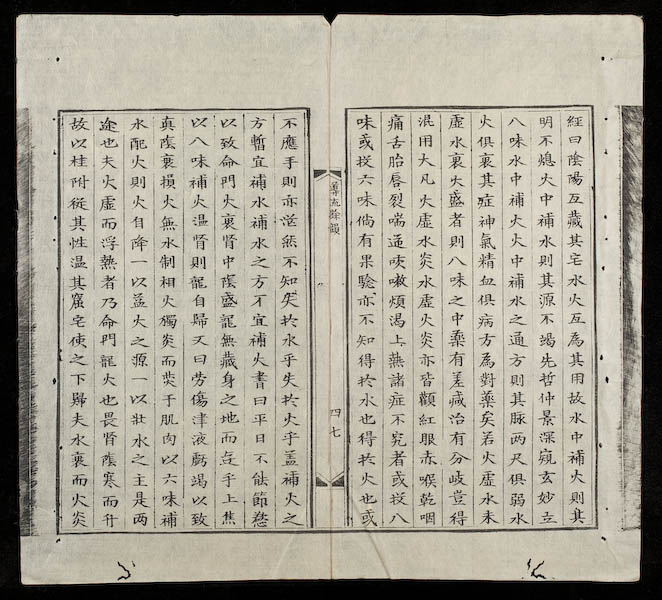 經曰陰陽互藏其宅水火互為其用故水中補火則其
明不熄火中補水則其源不竭先哲仲景深窺玄妙立
八味水中補火火中補水之通方則其脉两尺俱弱水
火俱衰其症神氣精血俱病方為對藥矣若火虛水未
虛水衰火盛者則八味之中藥有差減治有分岐豈得
混用大凡火虛水炎水虛火炎亦皆顴紅眼赤喉乾咽
痛舌胎唇裂喘逆咳嗽煩渴上熱諸症不究者或投八
味或投六味倘有果驗亦不知得於水也得於火也或
導流餘韻
四七
不應手則亦茫然不知失於水乎失於火乎盖補火之
方暫宜補水補水之方不宜補火書曰平日不能節慾
以致命門火衰腎中陰盛龍無藏身之地而立乎上焦
以八味補火温腎則龍自歸又曰劳傷津液虧竭以致
真陰衰損火無水制相火獨炎而炎于肌肉以六味補
水配火則火自降一以益火之源一以壯水之主是两
途也夫火虛而浮熱者乃命門龍火也畏腎陰寒而升
故以桂附從其性温其窟宅使之下歸夫水衰而火炎